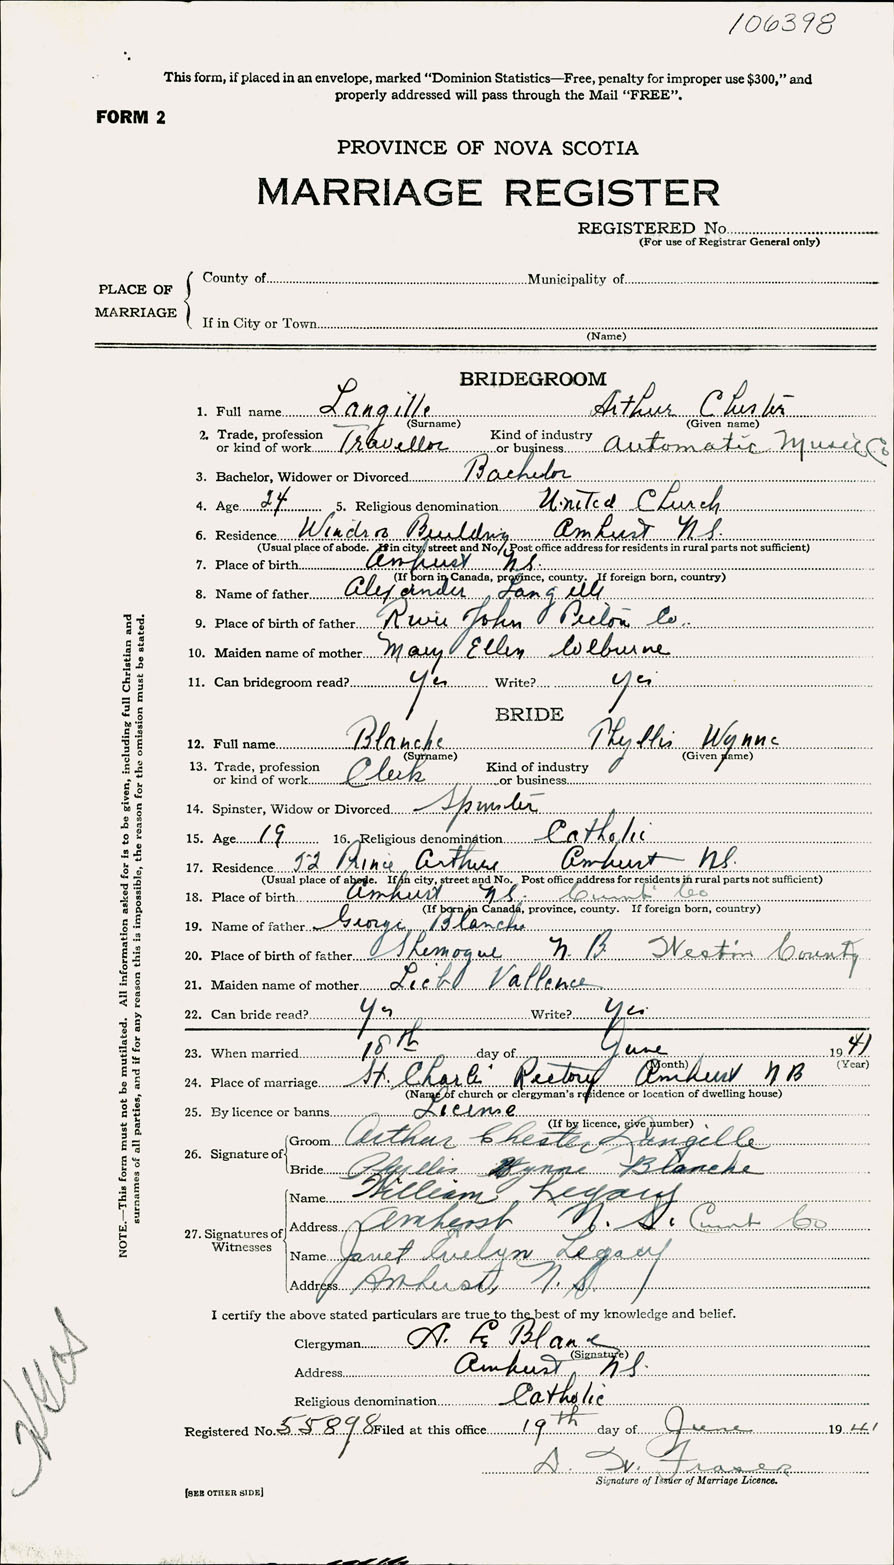 106398
This form, if placed in an envelope, marked “Dominion Statistics—Free, penalty for improper use $300,” and
properly addressed will pass through the Mail “FREE”.
FORM 2
PROVINCE OF NOVA SCOTIA
MARRIAGE REGISTER
REGISTERED No.
(For use of Registrar General only)
PLACE OF MARRIAGE
County of Municipality of
If in City or Town
(Name)
BRIDEGROOM
1. Full name Langille Arthur Chester
(Surname) (Given name)
2. Trade, profession or kind of work Traveller Kind of industry or business Automatic Music Co
3. Bachelor, Widower or Divorced Bachelor
4. Age 24 5. Religious denomination United Church
6. Residence Windsor Building Amherst N.S.
(Usual place of abode. If in city, street and No. Post office address for residents in rural parts not sufficient)
7. Place of birth Amherst N.S.
(If born in Canada, province, county. If foreign born, country)
8. Name of father Alexander Langille
9. Place of birth of father River John Pictou Co.
10. Maiden name of mother Mary Ellen Colburne
11. Can bridegroom read? Yes Write? Yes
BRIDE
12. Full name Blanche Phyllis Wynne
(Surname) (Given name)
13. Trade, profession or kind of work Clerk Kind of industry or business
14. Spinster, Widow or Divorced Spinster
15. Age 19 16. Religious denomination Catholic
17. Residence 52 Prince Arthur Amherst N.S.
(Usual place of abode. If in city, street and No. Post office address for residents in rural parts not sufficient)
18. Place of birth Amherst N.S. Cumb Co
(If born in Canada, province, county. If foreign born, country)
19. Name of father George Blanche
20. Place of birth of father Shemogue N.B. County
21. Maiden name of mother Vallence
22. Can bride read? Yes Write? Yes
23. When married 18th day of June 1941
(Month) (Year)
24. Place of marriage St. Charles' Rectory Amherst NB
(Name of church or clergyman's residence or location of dwelling house)
25. By licence or banns License
(If by licence, give number)
26. Signature of Groom Arthur Chester Langille
Bride Phyllis Wynne Blanche
27. Signatures of Witnesses
Name William Legacy
Address Amherst N.S. Cumb Co
Name Janet Evelyn Legacy
Address Amherst, N.S.
I certify the above stated particulars are true to the best of my knowledge and belief.
Clergyman A. E Blane
(Signature)
Address Amherst N.S.
Religious denomination Catholic
Registered No. 55898 Filed at this office 19th day of June 1941
D. W. Fraser
Signature of Issuer of Marriage Licence.
[SEE OTHER SIDE]
NOTE.—This form must not be mutilated. All information asked for is to be given, including full Christian and
surnames of all parties, and if for any reason this is impossible, the reason for the omission must be stated.